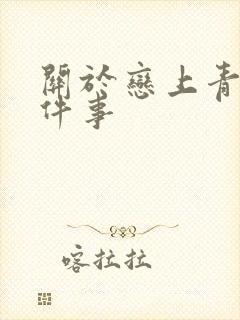 關於戀上青
件事
喀拉拉